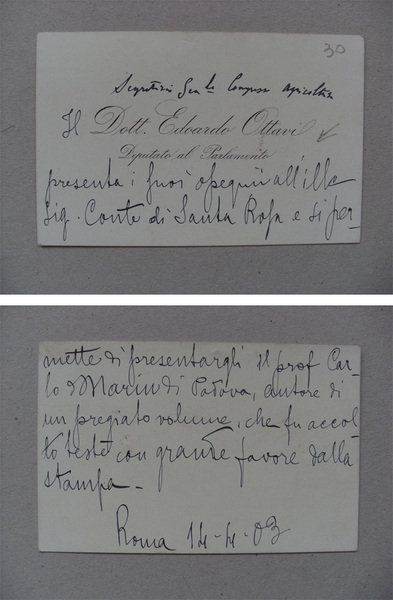 30
Segretario Gen.le Congresso agricoltura
Il Dott. Edoardo Ottavi
Deputato al Parlamento
presenta i suoi ossequii all'ill.e
Sig. Conte di Santa Rosa e si per-
mette di presentargli il prof Car-
lo Marin di Padova, autore di
un pregiato volume, che fu accol-
to testé con grande favore dalla
stampa -
Roma 14-4-03